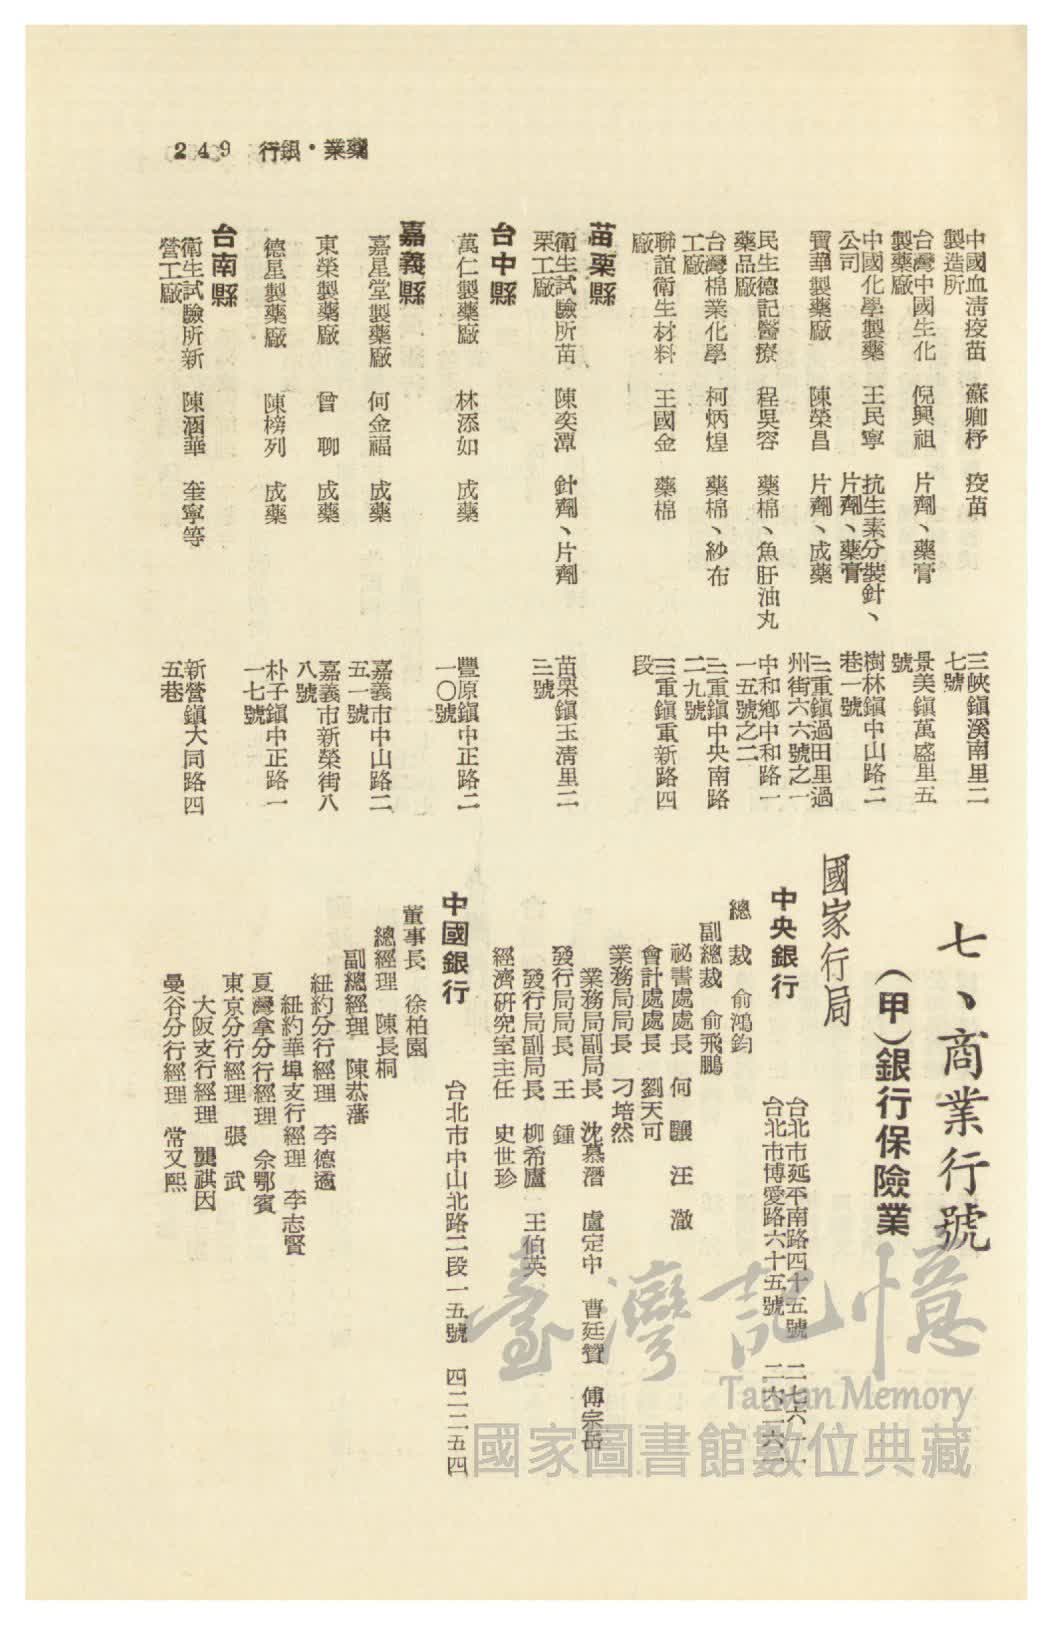 藥業・銀行 249
中國血淸疫苗製造所 蘇卿杼 疫苗 三峽鎭溪南里二七號
台灣中國生化製藥廠 倪興祖 片劑、藥膏 景美鎭萬盛里五號
中國化學製藥公司 王民寧 抗生素分裝針、片劑、藥膏 樹林鎭中山路二巷一號
寶華製藥廠 陳榮昌 片劑、成藥 三重鎭過田里過州街六六號之一
民生德記醫療藥品廠 程吳容 藥棉、魚肝油丸 中和鄕中和路一一五號之二
台灣棉業化學工廠 柯炳煌 藥棉、紗布 三重鎭中央南路二九號
聯誼衞生材料廠 王國金 藥棉 三重鎭重新路四段
苗栗縣
衞生試驗所苗栗工廠 陳奕潭 針劑、片劑 苗栗鎭玉淸里二三號
台中縣
萬仁製藥廠 林添如 成藥 豐原鎭中正路二一〇號
嘉義縣
嘉星堂製藥廠 何金福 成藥 嘉義市中山路二五一號
東榮製藥廠 曾聊 成藥 嘉義市新榮街八八號
德星製藥廠 陳榜列 成藥 朴子鎭中正路一一七號
台南縣
衞生試驗所新營工廠 陳涵華 奎寧等 新營鎭大同路四五巷
七、商業行號
（甲）銀行保險業
國家行局
中央銀行 台北市延平南路四十五號 二七六一一
台北市博愛路六十五號 二六二六一
總裁 俞鴻鈞
副總裁 俞飛鵬
祕書處處長 何驤 汪澈
會計處處長 劉天可
業務局局長 刁培然
業務局副局長 沈慕潛 盧定中 曹廷贊 傅宗岳
發行局局長 王鍾
發行局副局長 柳希廬 王伯英
經濟硏究室主任 史世珍
中國銀行 台北市中山北路二段一五號 四二二五四
董事長 徐柏園
總經理 陳長桐
副總經理 陳恭藩
紐約分行經理 李德遹
紐約華埠支行經理 李志賢
夏灣拿分行經理 佘鄂賓
東京分行經理 張武
大阪支行經理 龔祺因
曼谷分行經理 常又熙
臺灣記憶
Taiwan Memory
國家圖書館數位典藏